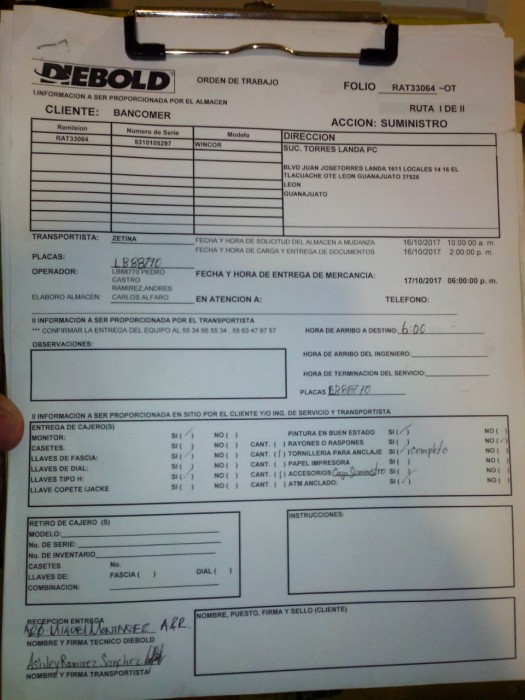 DIEBOLD
ORDEN DE TRABAJO
FOLIO RAT33064 -OT
I.INFORMACION A SER PROPORCIONADA POR EL ALMACEN
RUTA I DE II
CLIENTE: BANCOMER
ACCION: SUMINISTRO
Remision Numero de Serie Modelo DIRECCION
RAT33064 5310105297 WINCOR SUC. TORRES LANDA PC
BLVD JUAN JOSETORRES LANDA 1611 LOCALES 14 16 EL
TLACUACHE OTE LEON GUANAJUATO 37528
LEON
GUANAJUATO
TRANSPORTISTA: ZETINA
FECHA Y HORA DE SOLICITUD DEL ALMACEN A MUDANZA 16/10/2017 10:00:00 a. m.
FECHA Y HORA DE CARGA Y ENTREGA DE DOCUMENTOS 16/10/2017 2:00:00 p. m.
PLACAS: LB88770
OPERADOR: LB88770 PEDRO
CASTRO
RAMIREZ ANDRES
FECHA Y HORA DE ENTREGA DE MERCANCIA: 17/10/2017 06:00:00 p. m.
ELABORO ALMACEN CARLOS ALFARO EN ATENCION A: TELEFONO:
II INFORMACION A SER PROPORCIONADA POR EL TRANSPORTISTA
*** CONFIRMAR LA ENTREGA DEL EQUIPO AL
HORA DE ARRIBO A DESTINO: 6:00
OBSERVACIONES:
HORA DE ARRIBO DEL INGENIERO:
HORA DE TERMINACION DEL SERVICIO:
PLACAS
II INFORMACION A SER PROPORCIONADA EN SITIO POR EL CLIENTE Y/O ING. DE SERVICIO Y TRANSPORTISTA
ENTREGA DE CAJERO(S) PINTURA EN BUEN ESTADO SI ( ) NO ( )
MONITOR: SI ( ) NO ( ) CANT. ( ) RAYONES O RASPONES SI ( ) NO ( )
CASETES. SI ( ) NO ( ) CANT. ( ) TORNILLERIA PARA ANCLAJE SI ( ) NO ( )
LLAVES DE FASCIA: SI ( ) NO ( ) CANT. ( ) PAPEL IMPRESORA SI ( ) NO ( )
LLAVES DE DIAL: SI ( ) NO ( ) CANT. ( ) ACCESORIOS SI ( ) NO ( )
LLAVES TIPO H: SI ( ) NO ( ) CANT. ( ) ATM ANCLADO: SI ( ) NO ( )
LLAVE COPETE /JACKE SI ( ) NO ( )
RETIRO DE CAJERO (S)
MODELO:
No. DE SERIE:
No. DE INVENTARIO
CASETES No.
LLAVES DE: FASCIA ( ) DIAL ( )
COMBINACION:
INSTRUCCIONES:
RECEPCION ENTREGA
NOMBRE Y FIRMA TECNICO DIEBOLD
Ashley Ramirez Sanchez
NOMBRE Y FIRMA TRANSPORTISTA
NOMBRE, PUESTO, FIRMA Y SELLO (CLIENTE)